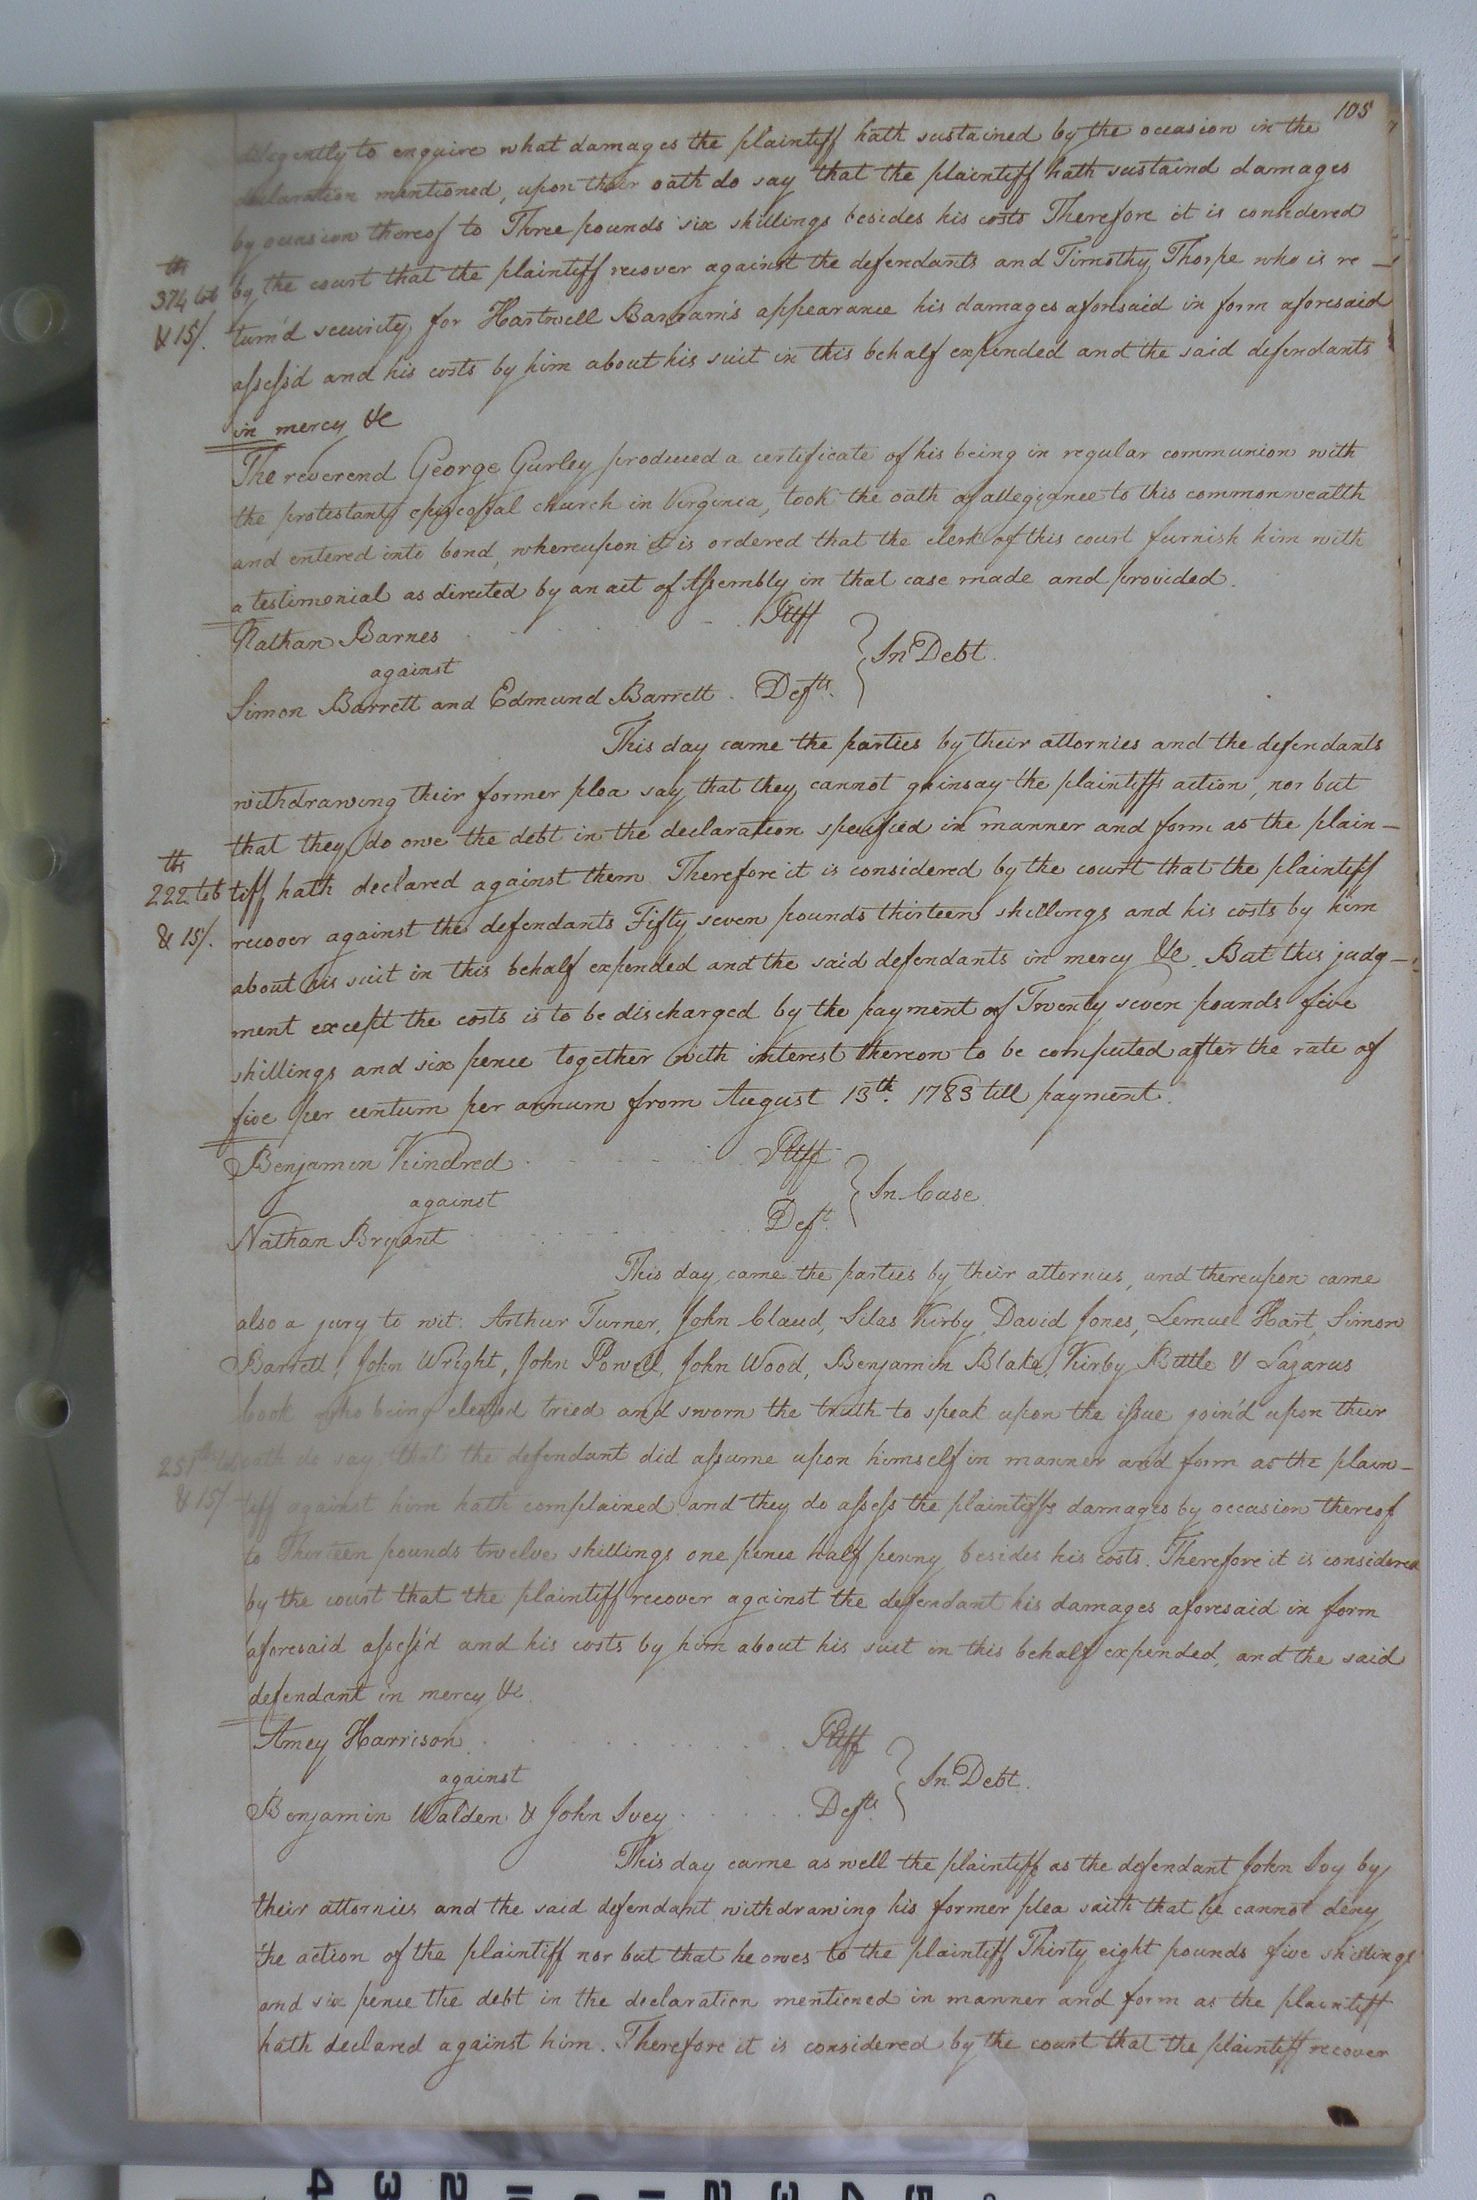 105
diligently to enquire what damages the plaintiff hath sustained by the occasion in the
declaration mentioned, upon their oath do say that the plaintiff hath sustaind damages
by occasion thereof to Three pounds six shillings besides his costs Therefore it is considered
by the court that the plaintiff recover against the defendants and Timothy Thorpe who is re-
turn'd security for Hartwell Barham's appearance his damages aforesaid in form aforesaid
assess'd and his costs by him about his suit in this behalf expended and the said defendants
in mercy &c
374 tob
& 15/.
The reverend George Gurley produced a certificate of his being in regular communion with
the protestant episcopal church in Virginia, took the oath of allegiance to this commonwealth
and entered into bond, whereupon it is ordered that the clerk of this court furnish him with
a testimonial as directed by an act of Assembly in that case made and provided.
Nathan Barnes Pltff
against
In Debt.
Simon Barrett and Edmund Barrett. Defts.
This day came the parties by their attornies and the defendants
withdrawing their former plea say that they cannot gainsay the plaintiffs action, nor but
that they do owe the debt in the declaration specified in manner and form as the plain-
tiff hath declared against them. Therefore it is considered by the court that the plaintiff
recover against the defendants Fifty seven pounds thirteen shillings and his costs by him
about his suit in this behalf expended and the said defendants in mercy &c. But this judg-
ment except the costs is to be discharged by the payment of Twenty seven pounds five
shillings and six pence together with interest thereon to be computed after the rate of
five per centum per annum from August 13th. 1783 till payment.
222 tob
& 15/.
Benjamin Kindred Pltff
against
In Case
Nathan Bryant Deft.
This day came the parties by their attornies, and thereupon came
also a jury to wit: Arthur Turner, John Claud, Silas Kirby, David Jones, Lemuel Hart, Simon
Barrett, John Wright, John Powell, John Wood, Benjamin Blake, Kirby Bittle & Lazarus
Cook who being elected tried and sworn the truth to speak upon the issue join'd upon their
oath do say that the defendant did assume upon himself in manner and form as the plain-
tiff against him hath complained and they do assess the plaintiffs damages by occasion thereof
to Thirteen pounds twelve shillings one pence half penny besides his costs. Therefore it is considered
by the court that the plaintiff recover against the defendant his damages aforesaid in form
aforesaid assess'd and his costs by him about his suit in this behalf expended, and the said
defendant in mercy &c.
& 15/
Amey Harrison Pltff
against
In Debt.
Benjamin Walden & John Ivey Defts.
This day came as well the plaintiff as the defendant John Ivy by
their attornies and the said defendant withdrawing his former plea saith that he cannot deny
the action of the plaintiff nor but that he owes to the plaintiff Thirty eight pounds five shillings
and six pence the debt in the declaration mentioned in manner and form as the plaintiff
hath declared against him. Therefore it is considered by the court that the plaintiff recover